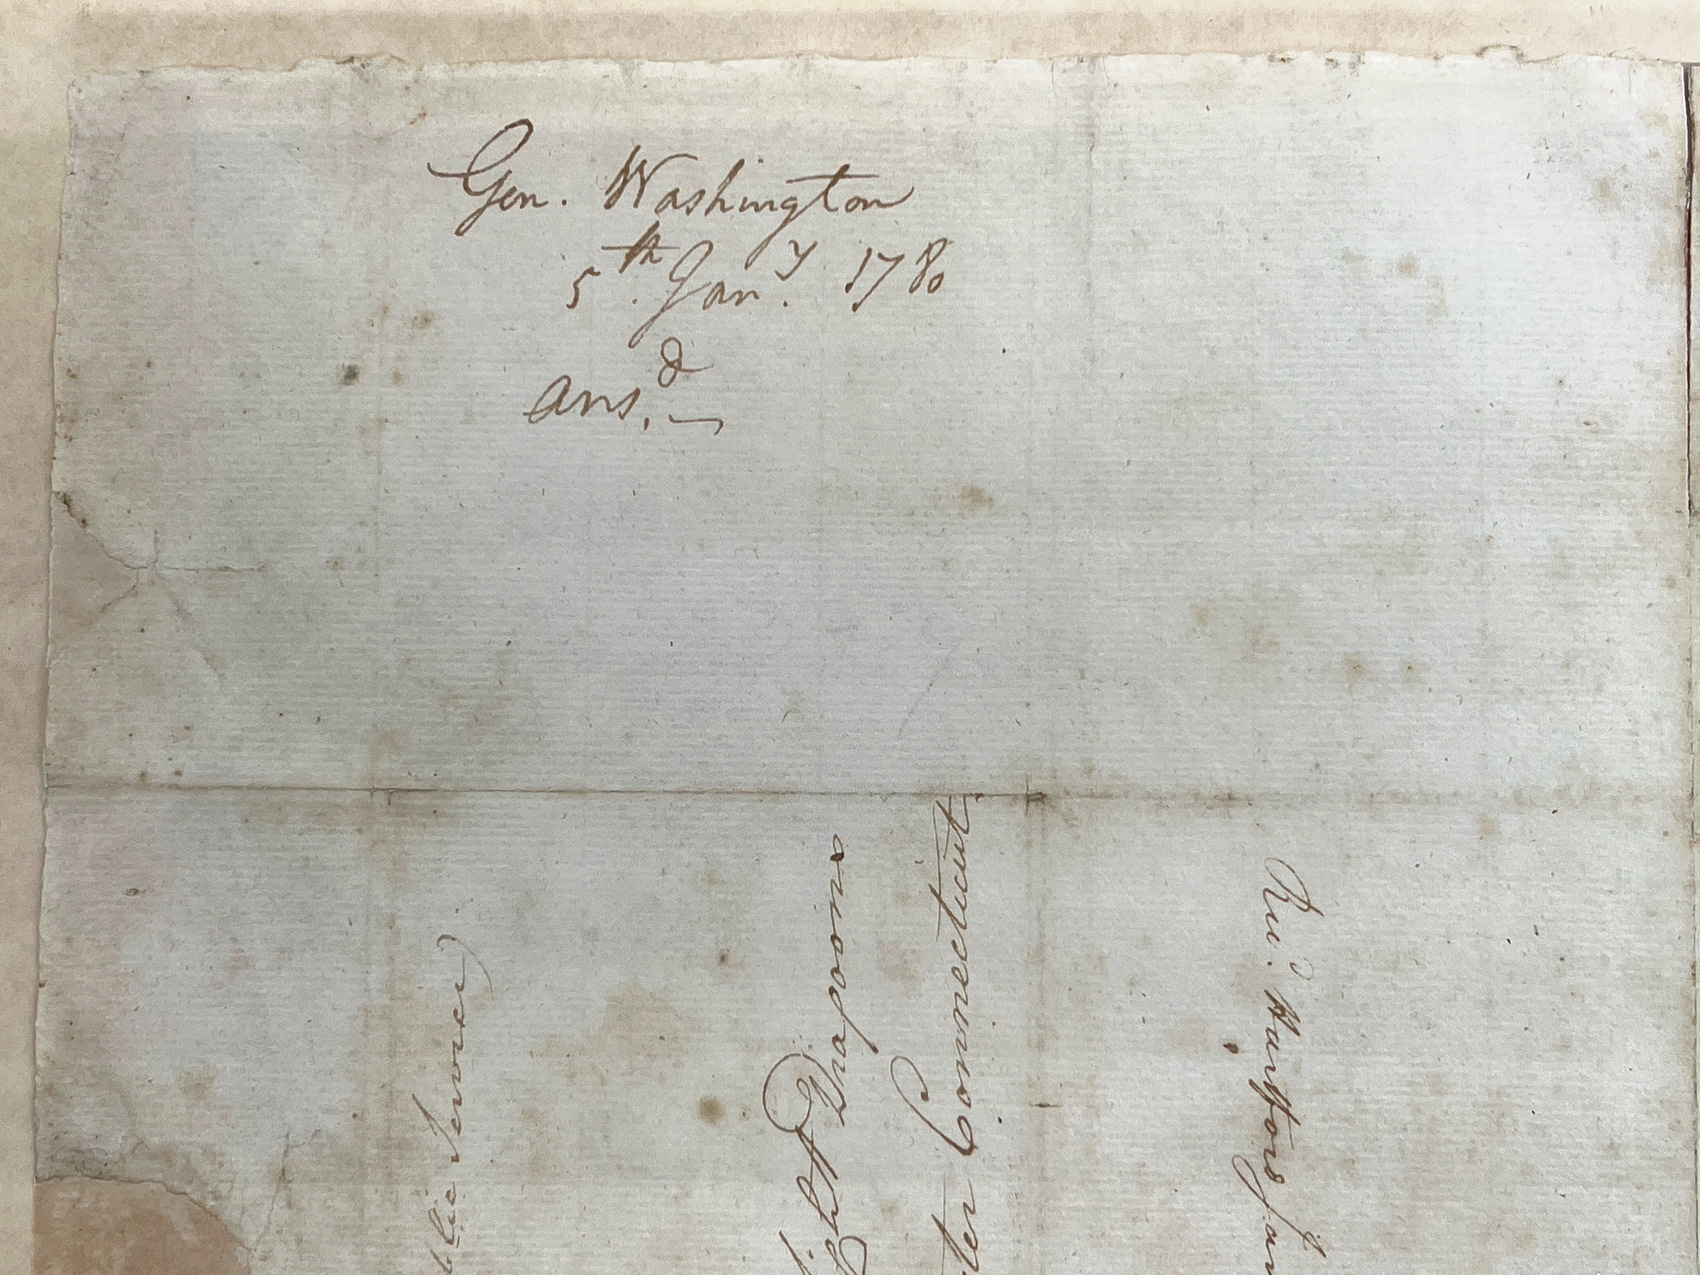 Gen. Washington
5th. Jany. 1780
Ansd. —
Service)
Light Dragoons
Connecticut
Recd. Hartford Jan